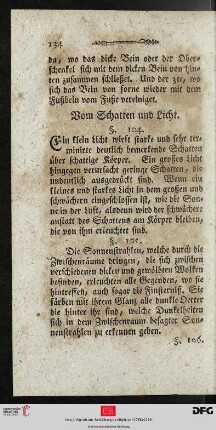 134
da, wo das dicke Bein oder der Ober-
schenkel sich mit dem dicken Bein von hin-
ten zusammen schließet. Und der 3te, wo
sich das Bein von forne wieder mit dem
Fußbein vom Fuße vereiniget.
Vom Schatten und Licht.
§. 104.
Ein klein Licht wirft starke und sehr ter-
minirte deutlich bemerkende Schatten
über schattige Körper. Ein großes Licht
hingegen verursacht geringe Schatten, die
undeutlich ausgedrückt sind. Wenn ein
kleines und starkes Licht in dem großen und
schwächern eingeschlossen ist, wie die Son-
ne in der Luft, alsdenn wird der schwächere
anstatt des Schattens am Körper bleiben,
die von ihm erleuchtet sind.
§. 105.
Die Sonnenstrahlen, welche durch die
Zwischenräume dringen, die sich zwischen
verschiedenen dicken und gewölbten Wolken
befinden, erleuchten alle Gegenden, wo sie
hintreffen, auch sogar die Finsterniß. Sie
färben mit ihrem Glanz alle dunkle Oerter
die hinter ihr sind, welche Dunkelheiten
sich in dem Zwischenraum besagter Son-
nenstrahlen zu erkennen geben.
§. 106.
DFG